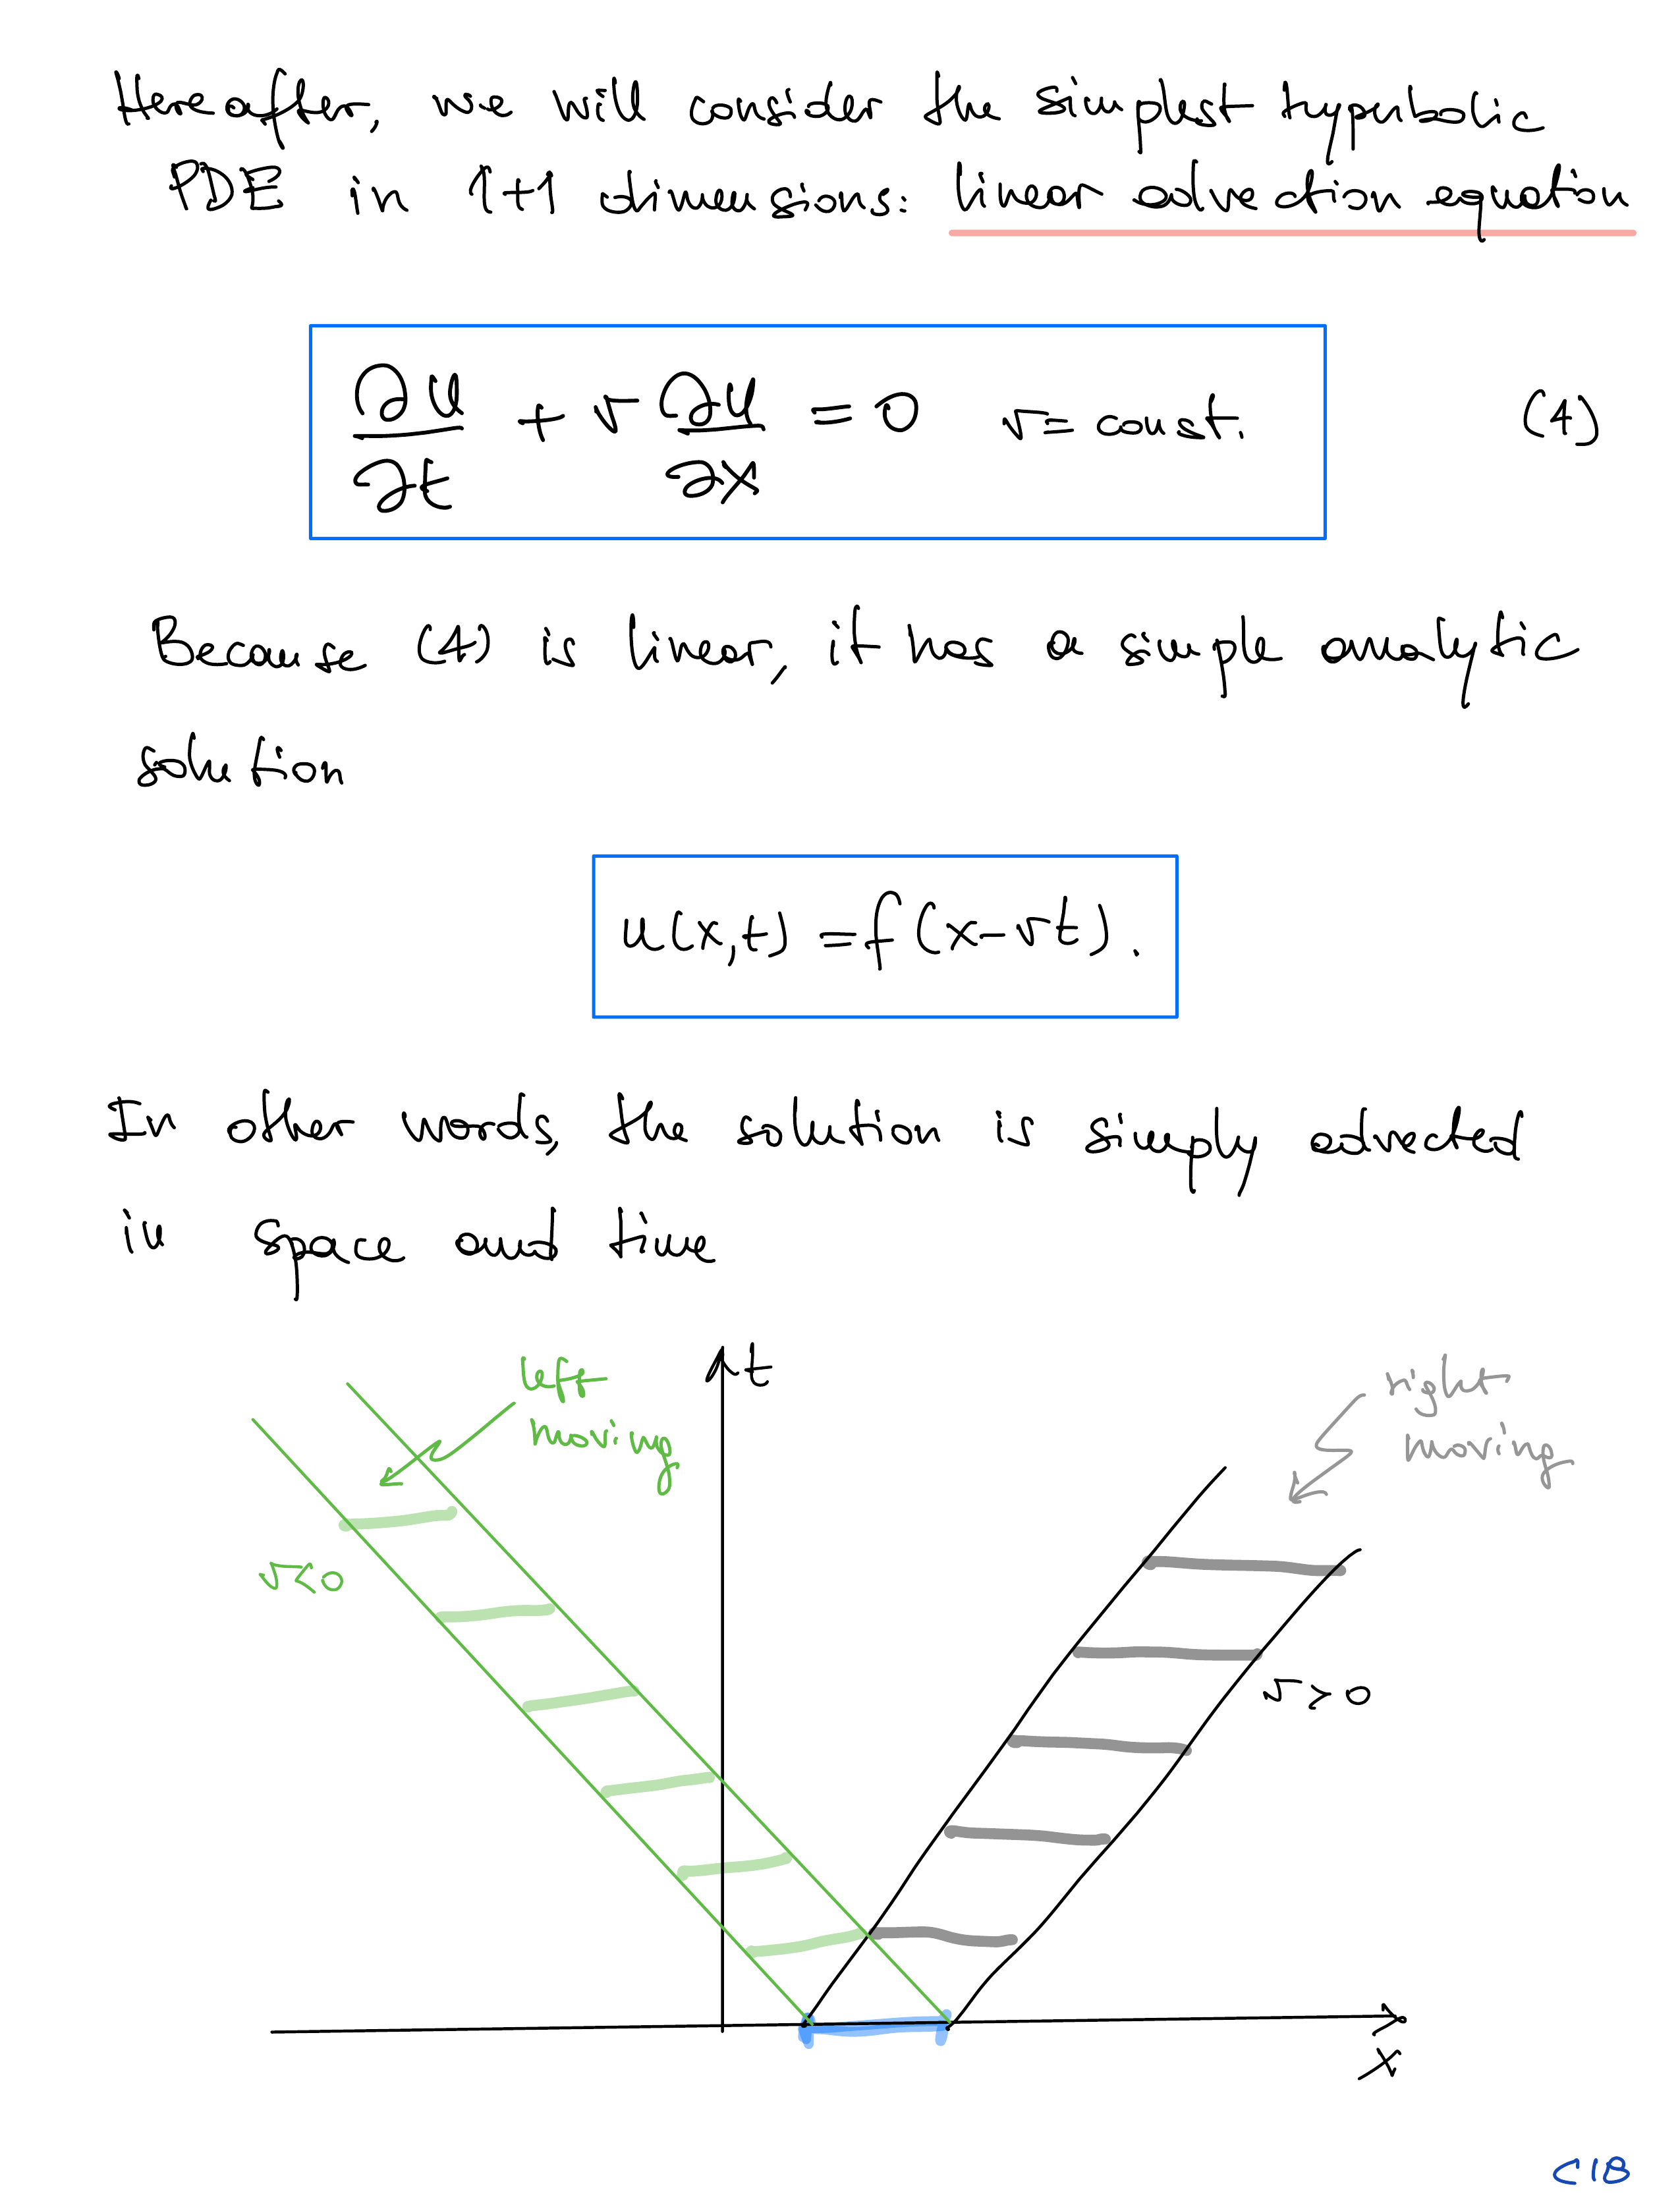 Hereafter, we will consider the simplest hyperbolic
PDE in 1+1 dimensions: linear advection equation
∂u/∂t + v ∂u/∂x = 0 v = const. (4)
Because (4) is linear, it has a simple analytic
solution
u(x,t) = f(x-vt).
In other words, the solution is simply advected
in space and time
left
moving
t
right
moving
v<0
v>0
x
C1B